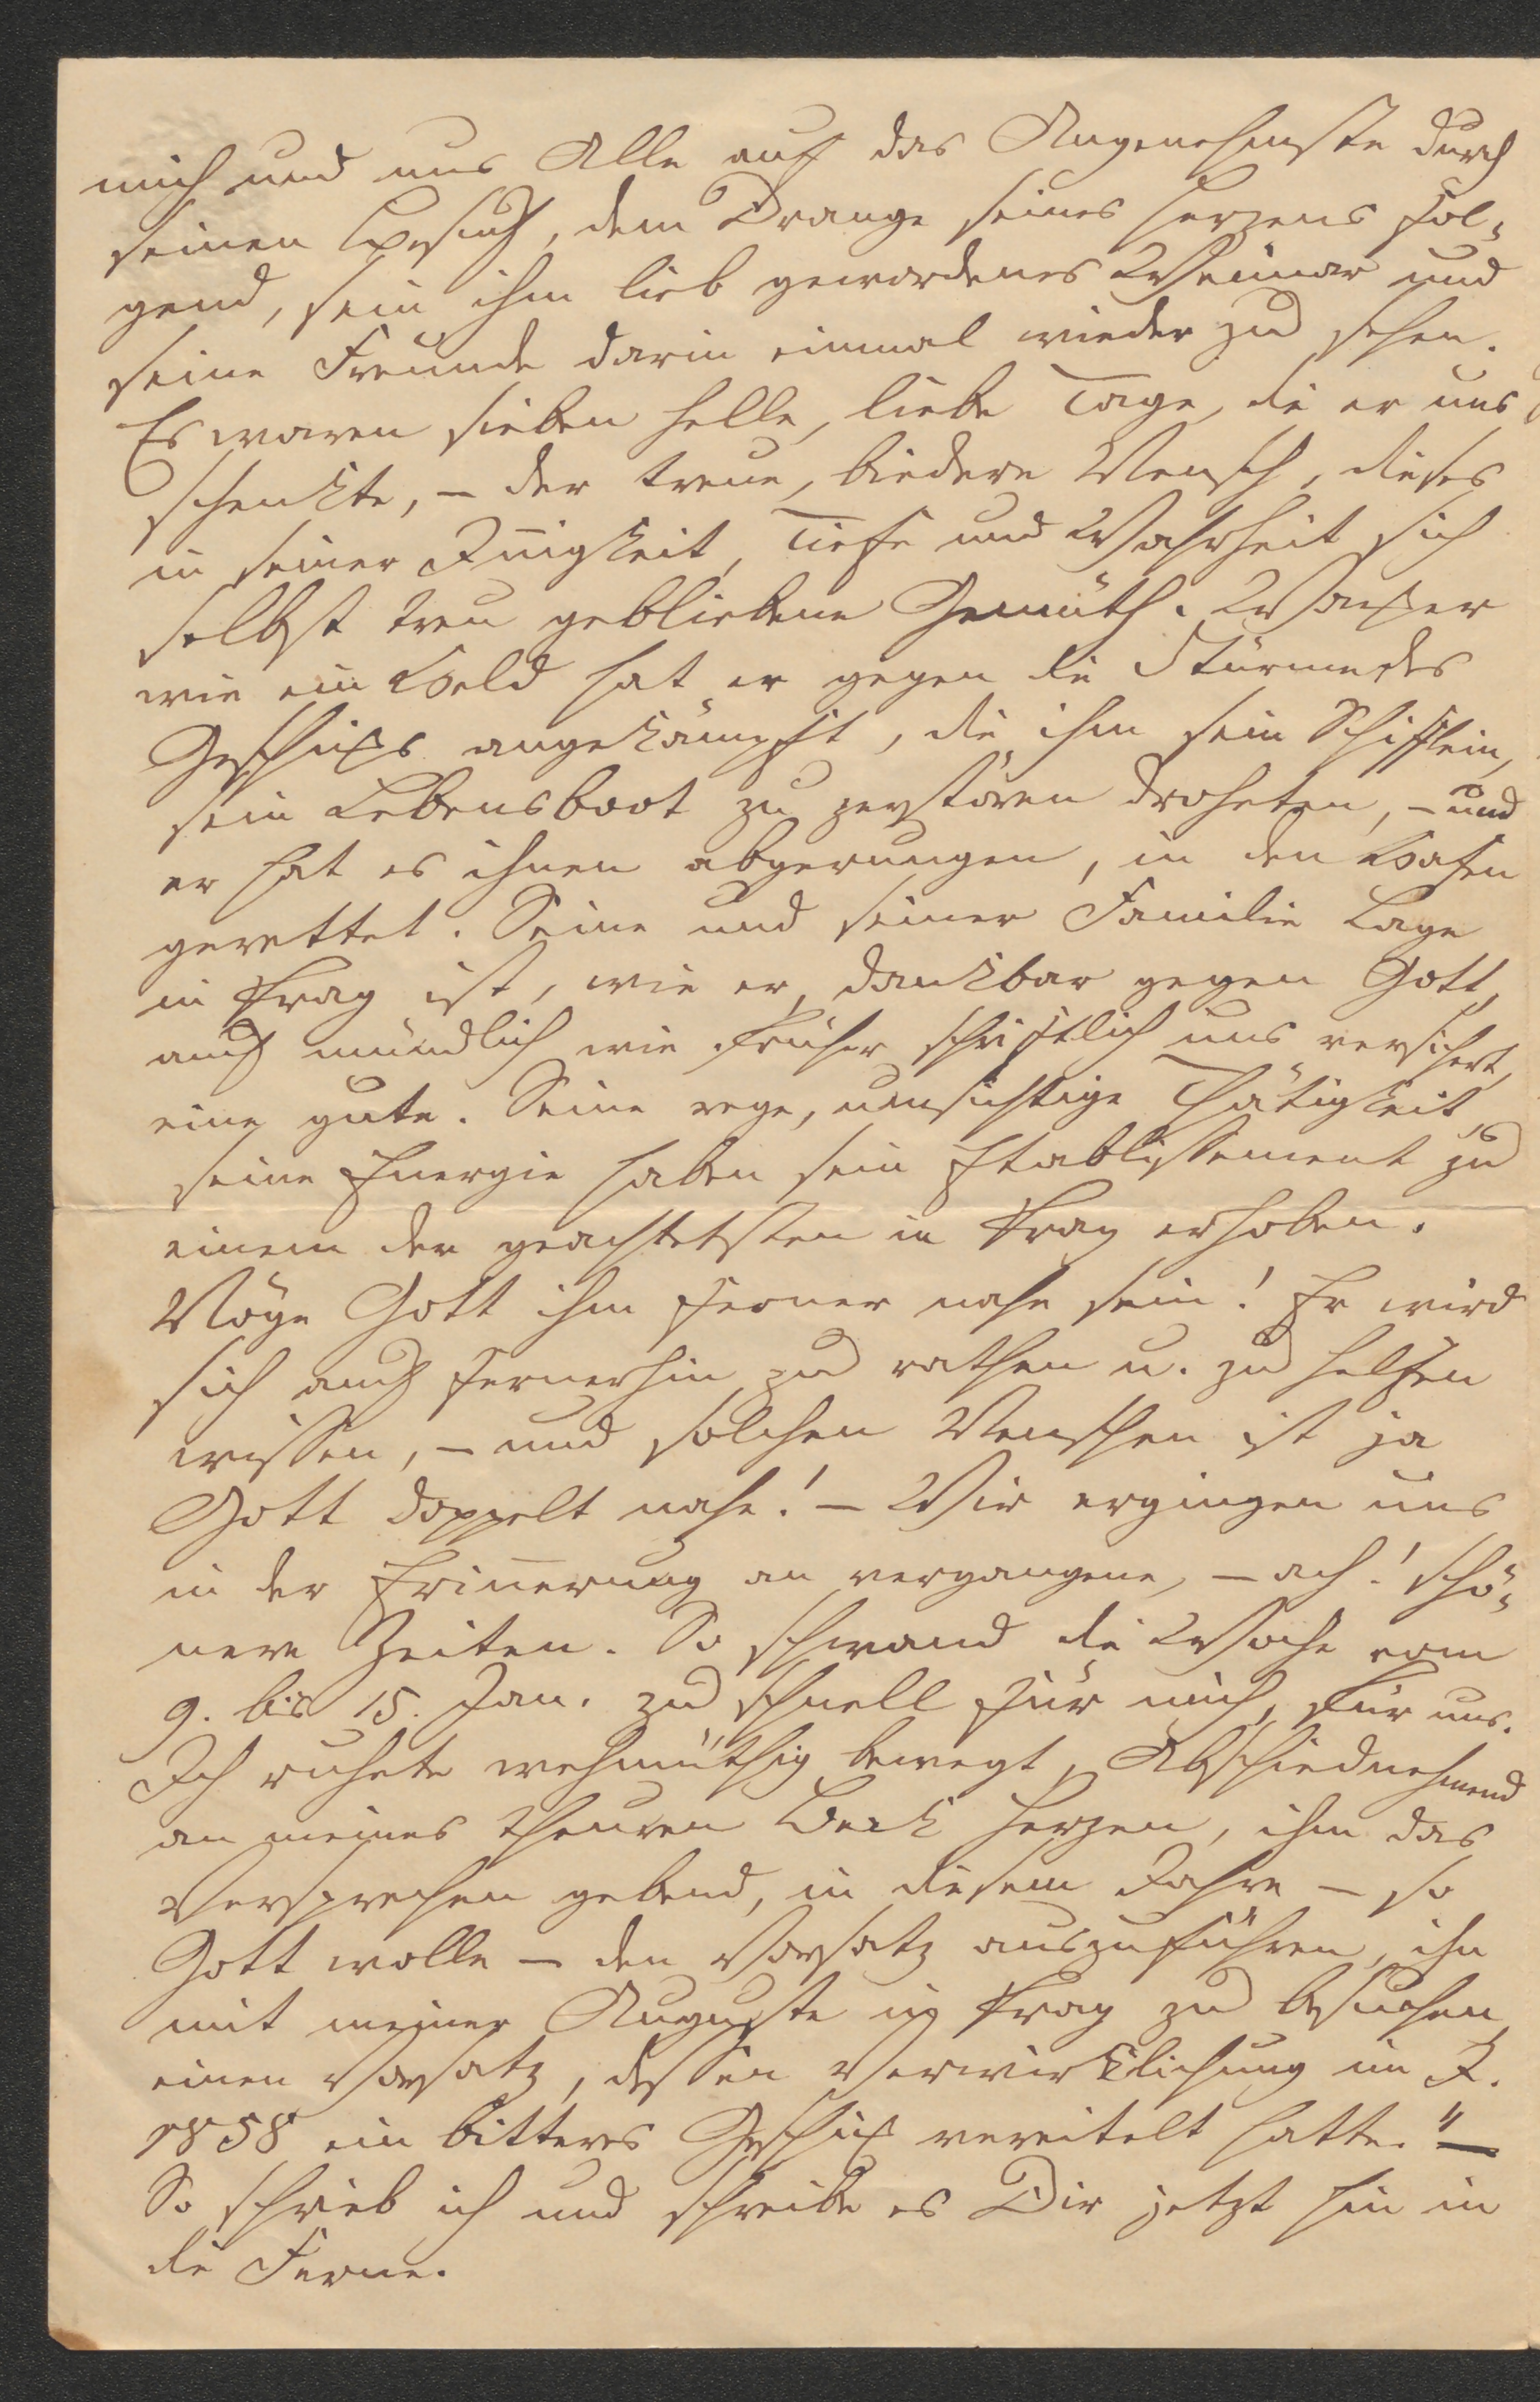 mich und uns Alle auf das Angenehmste durch
seinen Besuch, dem Drange seines Herzens fol-
gend, sein ihm lieb gewordenes Weimar und
seine Freunde darin einmal wieder zu sehen.
Es waren sieben helle, liebe Tage, die er uns
schenkte, – der treue, biedere Mensch, dieses
in seiner Iñigkeit, Tiefe und Wahrheit sich
selbst treu gebliebene Gemüth. Wacker
wie ein Held hat er gegen die Stürme des
Geschicks angekämpft, die ihm sein Schifflein,
sein Lebensboot zu zerstören droheten, – und
er hat es ihnen abgerungen, in den Hafen
gerettet. Seine und seiner Familie Lage
in Prag ist, wie er, dankbar gegen Gott,
auch mündlich wie früher schriftlich uns versichert,
eine gute. Seine rege, umsichtige Thätigkeit,
seine Energie haben sein Etablissement zu
einem der geachtetsten in Prag erhoben.
Möge Gott ihm ferner nahe sein! Er wird
sich auch fernerhin zu rathen u. zu helfen
wissen, – und solchen Menschen ist ja
Gott doppelt nahe! – Wir ergingen uns
in der Eriñerung an vergangene, – ach! schö-
nere Zeiten. So schwand die Woche vom
9. bis 15. Jan. zu schnell für mich, für uns.
Ich ruhete wehmüthig bewegt, Abschiednehmend
an meines theuren Beck Herzen, ihm das
Versprechen gebend, in diesem Jahre – so
Gott wolle – den Vorsatz auszuführen, ihn
mit meiner Auguste in Prag zu besuchen,
einen Vorsatz, dessen Verwirklichung im J.
1858 ein bitteres Geschick vereitelt hatte." –
So schrieb ich und schreibe es Dir jetzt hin in
die Ferne.